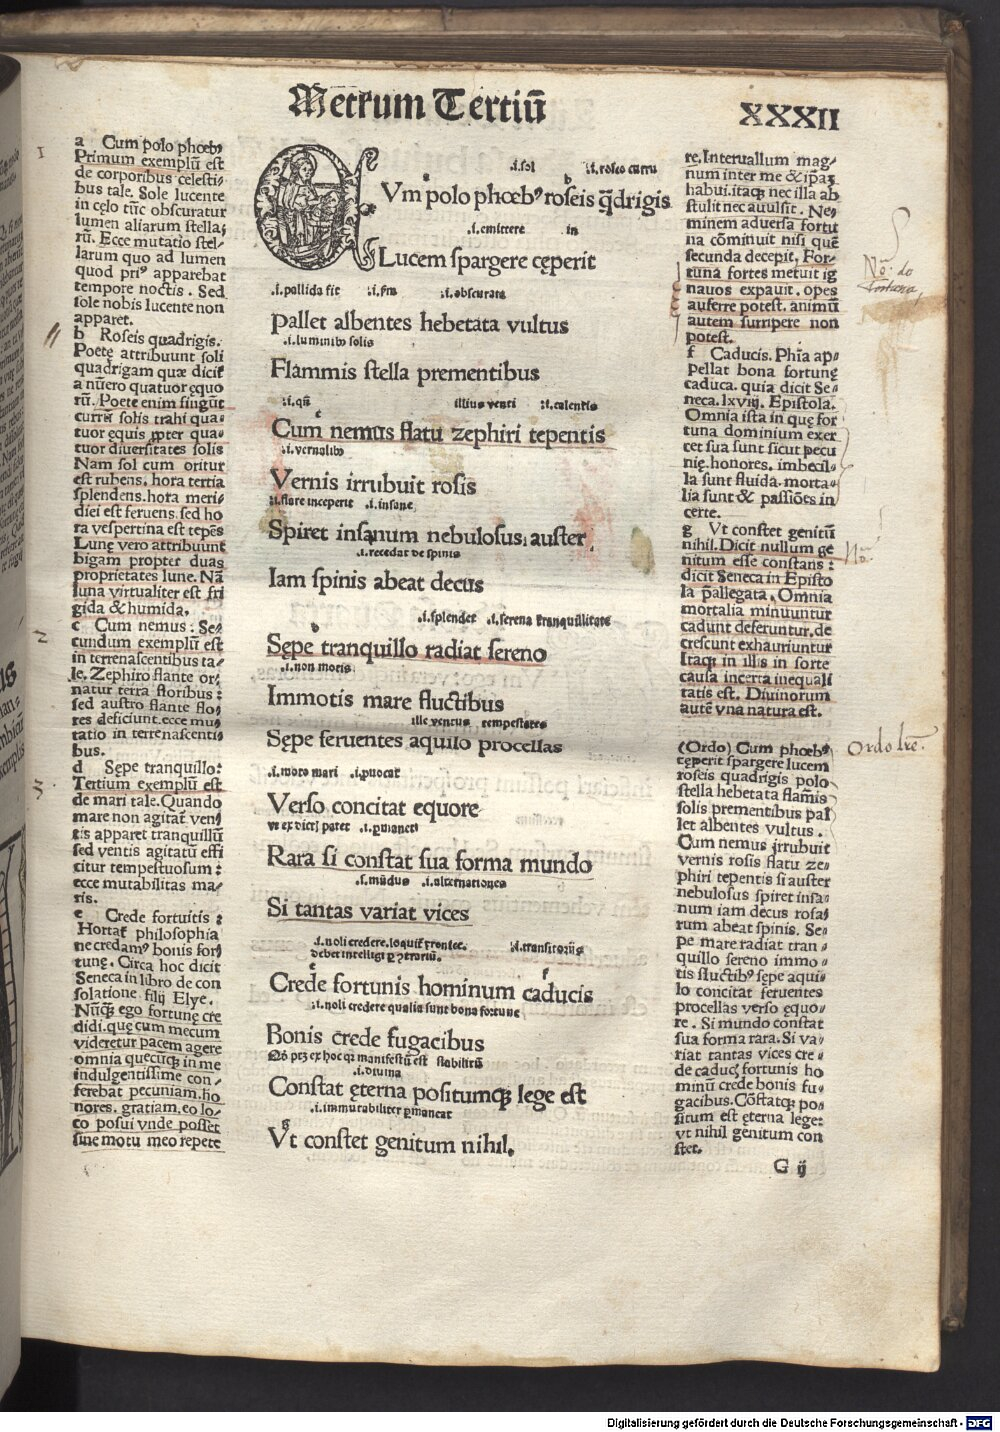 Metrum Tertiū
XXXII
a Cum polo phœbꝰ
Primum exemplū est
de corporibus celesti⸗
bus tale. Sole lucente
in cęlo tūc obscuratur
lumen aliarum stella⸗
rū. Ecce mutatio stel⸗
larum quo ad lumen
quod priꝰ apparebat
tempore noctis. Sed
sole nobis lucente non
apparet.
b Roseis quadrigis.
Poetę attribuunt soli
quadrigam quæ dicit
a nūero quatuor ęquo
rū. Poete enim fingūt
currū solis trahi qua⸗
tuor ęquis ꝓpter qua⸗
tuor diuersitates solis
Nam sol cum oritur
est rubens. hora tertia
splendens. hora meri⸗
diei est feruens. sed ho
ra vespertina est tepēs
Lunę vero attribuunt
bigam propter duas
proprietates lune. Nā
luna virtualiter est fri
gida & humida.
c Cum nemus: Se⸗
cundum exemplū est
in terrenascentibus ta⸗
le. Zephiro flante or⸗
natur terra floribus:
sed austro flante flo⸗
res deficiunt. ecce mu⸗
tatio in terrenascenti
bus.
d Sępe tranquillo:
Tertium exemplū est
de mari tale. Quando
mare non agitat ven⸗
tis apparet tranquillū
sed ventis agitatū effi
citur tempestuosum:
ecce mutabilitas ma⸗
ris.
e Crede fortuitis:
Hortat philosophia
ne credamꝰ bonis for⸗
tunę. Circa hoc dicit
Seneca in libro de con
solatione filij Elye.
Nūꝙ ego fortunę cre
didi. quę cum mecum
videretur pacem agere
omnia quecūꝙ in me
indulgentissime con⸗
ferebat pecuniam. ho
nores. gratiam. eo lo⸗
co posui vnde posset
sine motu meo repete
.i. sol .i. roseo curru
CVm polo phœbꝰ roseis q̄drigis
.i. emittere in
Lucem spargere cęperit
.i. pallida fit .i. obscurata
Pallet albentes hebetata vultus
.i. luminibꝰ solis
Flammis stella prementibus
illius venti .i. calentis
Cum nemus flatu zephiri tepentis
.i. vernalibꝰ
Vernis irrubuit rosis
.i. flare inceperit .i. insane
Spiret insanum nebulosus auster
.i. recedat de spinis
Iam spinis abeat decus
.i. splendet .i. serena tranquillitate
Sępe tranquillo radiat sereno
.i. non motis
Immotis mare fluctibus
ille ventus tempestates
Sępe feruentes aquilo procellas
.i. moto mari .i. ꝓuocat
Verso concitat equore
Rara si constat sua forma mundo
.s. mūdus .i. alternationes
Si tantas variat vices
.i. noli credere.
.i. transitorijs
Crede fortunis hominum caducis
.i. noli credere qualia sunt bona fortune
Bonis crede fugacibus
.i. diuina
Constat ęterna positumꝙ lege est
.i. immutabiliter ꝑmaneat
Vt constet genitum nihil.
re. Interuallum mag⸗
num inter me & ipas
habui. itaꝙ nec illa ab
stulit nec auulsit. Ne⸗
minem aduersa fortu
na cōminuit nisi quē
secunda decepit. For⸗
tuna fortes metuit ig
nauos expauit. opes
auferre potest. animū
autem surripere non
potest.
f Caducis. Phīa ap⸗
pellat bona fortunę
caduca. quia dicit Se⸗
neca. lxviij. Epistola.
Omnia ista in quę for
tuna dominium exer
cet sua sunt sicut pecu
nię. honores. imbecil⸗
la sunt fluida. morta⸗
lia sunt & passiōes in
certe.
g Vt constet genitū
nihil. Dicit nullum ge
nitum esse constans:
dicit Seneca in Episto
la p̄allegata. Omnia
mortalia minuuntur
cadunt deferuntur. de
crescunt exhauriuntur
Itaꝙ in illis in sorte
causa incerta inequali
tatis est. Diuinorum
autē vna natura est.
(Ordo) Cum phœbꝰ
cęperit spargere lucem
roseis quadrigis polo
stella hebetata flāmis
solis prementibus pal
let albentes vultus.
Cum nemus irrubuit
vernis rosis flatu ze⸗
phiri tepentis si auster
nebulosus spiret insa⸗
num iam decus rosa⸗
rum abeat spinis. Se⸗
pe mare radiat tran⸗
quillo sereno immo⸗
tis fluctibꝰ sępe aqui⸗
lo concitat feruentes
procellas verso ęquo⸗
re. Si mundo constat
sua forma rara. Si va⸗
riat tantas vices cre⸗
de caducꝭ fortunis ho
minū crede bonis fu⸗
gacibus. Cōstatꝙ po⸗
situm est ęterna lege:
vt nihil genitum con
stet.
G ij
Ordo lr̄e.
Digitalisierung gefördert durch die Deutsche Forschungsgemeinschaft - DFG